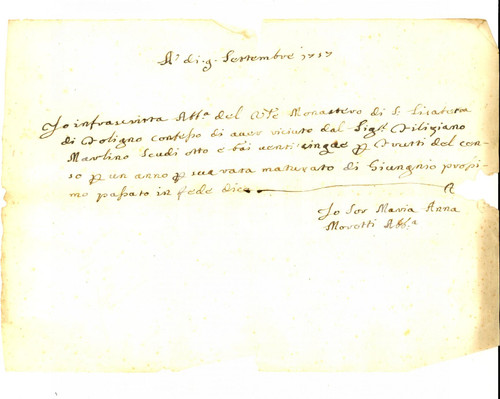 A' di 9 Settembre 1717
Io infrascritta Abb.a del Ven.le Monastero di S. Licatera
di Foligno confesso di aver riceuto dal Sig.r Filiziano
Marlino Scudi otto e bai venti cinque p frutti del cen
so p un anno p sua rata maturato di Giungnio prossi
mo passato in fede dico
Io Sor Maria Anna
Morotti Abb.a